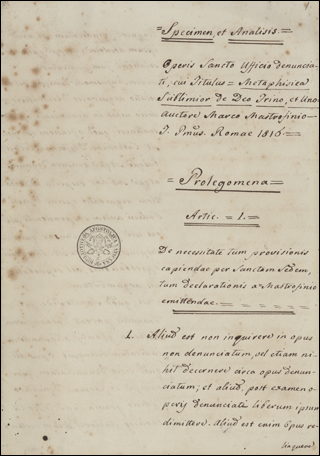 = Specimen, et Analisis. =
Operis Sancto Ufficio denuncia-
ti, cui Titulus = Metaphisica
Sublimior de Deo Trino, et Uno
Auctore Marco Mastrofinio =
T. Pmus. Romae 1816. =
= Prolegomena =
Artic. = 1. =
De necessitate tum provisionis
capiendae per Sanctam Sedem,
tum declarationis a Mastrofinio
emittendae. =
1. Aliud est non inquirere in opus
non denunciatum, vel etiam ni-
hil decernere circa opus denun-
ciatum; et aliud, post examen o-
peris denunciati liberum ipsum
dimittere. Aliud est enim opus re-
linquere,